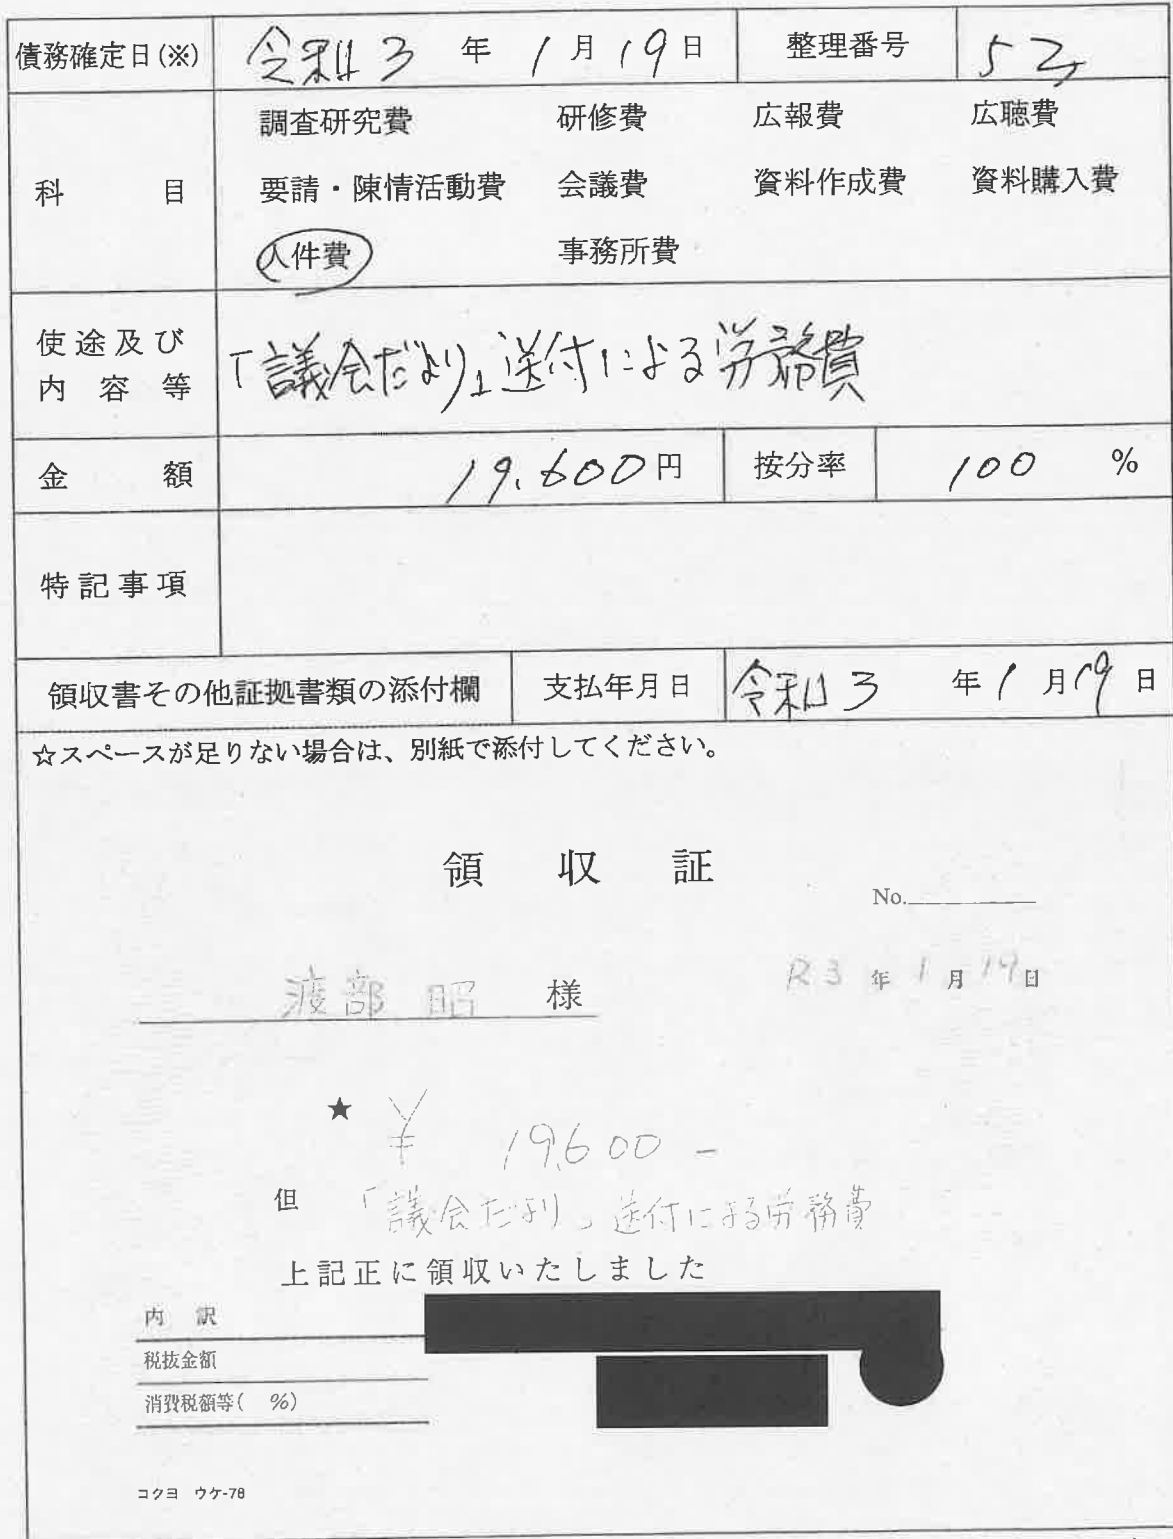 債務確定日(※) 令和3年1月19日 整理番号 52
調査研究費 研修費 広報費 広聴費
科目 要請・陳情活動費 会議費 資料作成費 資料購入費
人件費 事務所費
使途及び内容等 「議会だより」送付による労務費
金額 19,600円 按分率 100 %
特記事項
領収書その他証拠書類の添付欄 支払年月日 令和3年1月19日
☆スペースが足りない場合は、別紙で添付してください。
領収証
No.
渡部 昭 様 R3年1月19日
★ ¥ 19,600-
但 「議会だより」送付による労務費
上記正に領収いたしました
内訳
税抜金額
消費税額等( %)
コクヨ ウケ-78